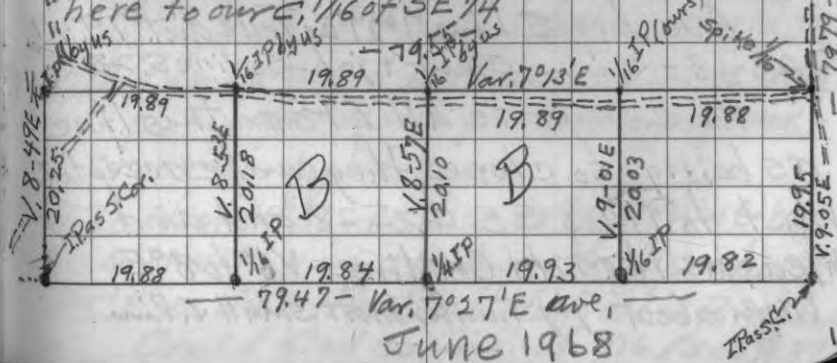 here to our C, 1/16 of SE 1/4
IP by us
1/16 IP by us
- 79.55
1/16 IP by us
1/16 IP (ours)
Spike 1/16
19.89
19.89
Var. 7°13'E
19.89
19.88
V. 8-49E
20.25
V. 8-53E
20.18
B
V. 8-57E
20.10
B
V. 9-01E
20.03
19.95
V. 9.05E
I.P. as S. Cor.
19.88
1/16 IP
19.84
1/4 IP
19.93
1/16 IP
19.82
79.47 - Var. 7°27'E ave,
June 1968
I.P. as S.C.